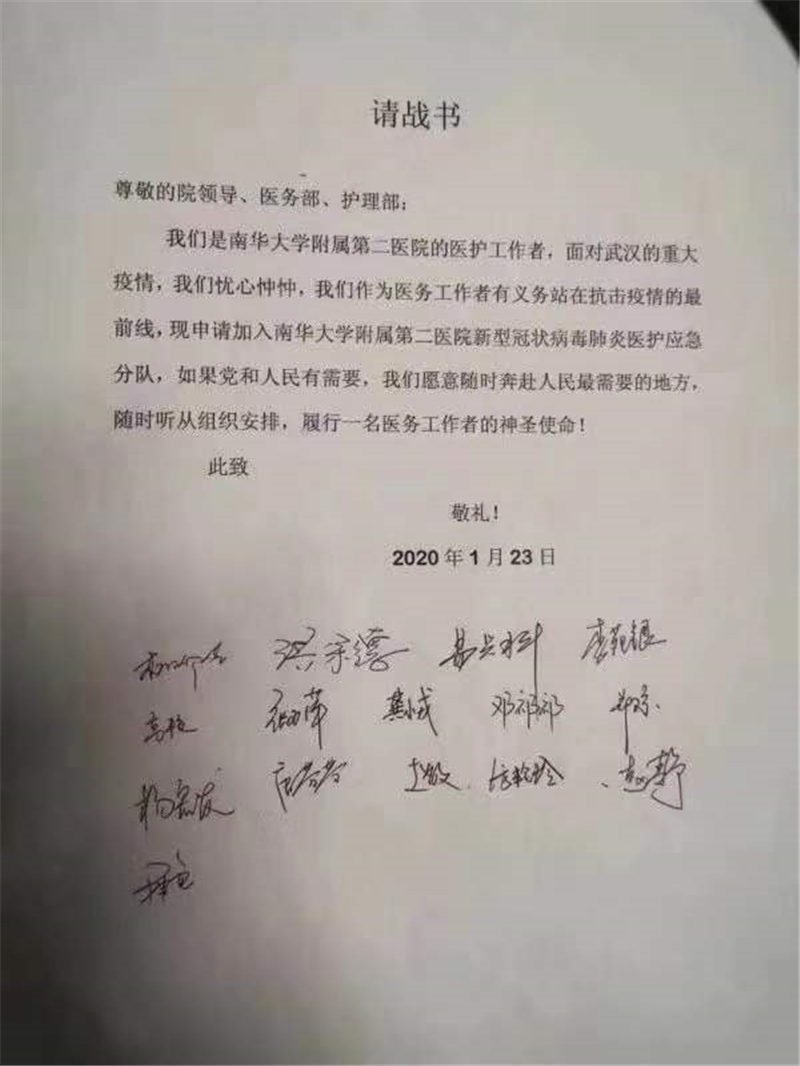 请战书
尊敬的院领导、医务部、护理部：
我们是南华大学附属第二医院的医护工作者，面对武汉的重大
疫情，我们忧心忡忡，我们作为医务工作者有义务站在抗击疫情的最
前线，现申请加入南华大学附属第二医院新型冠状病毒肺炎医护应急
分队，如果党和人民有需要，我们愿意随时奔赴人民最需要的地方，
随时听从组织安排，履行一名医务工作者的神圣使命！
此致
敬礼！
2020 年 1 月 23 日
宗德
邓祁祁